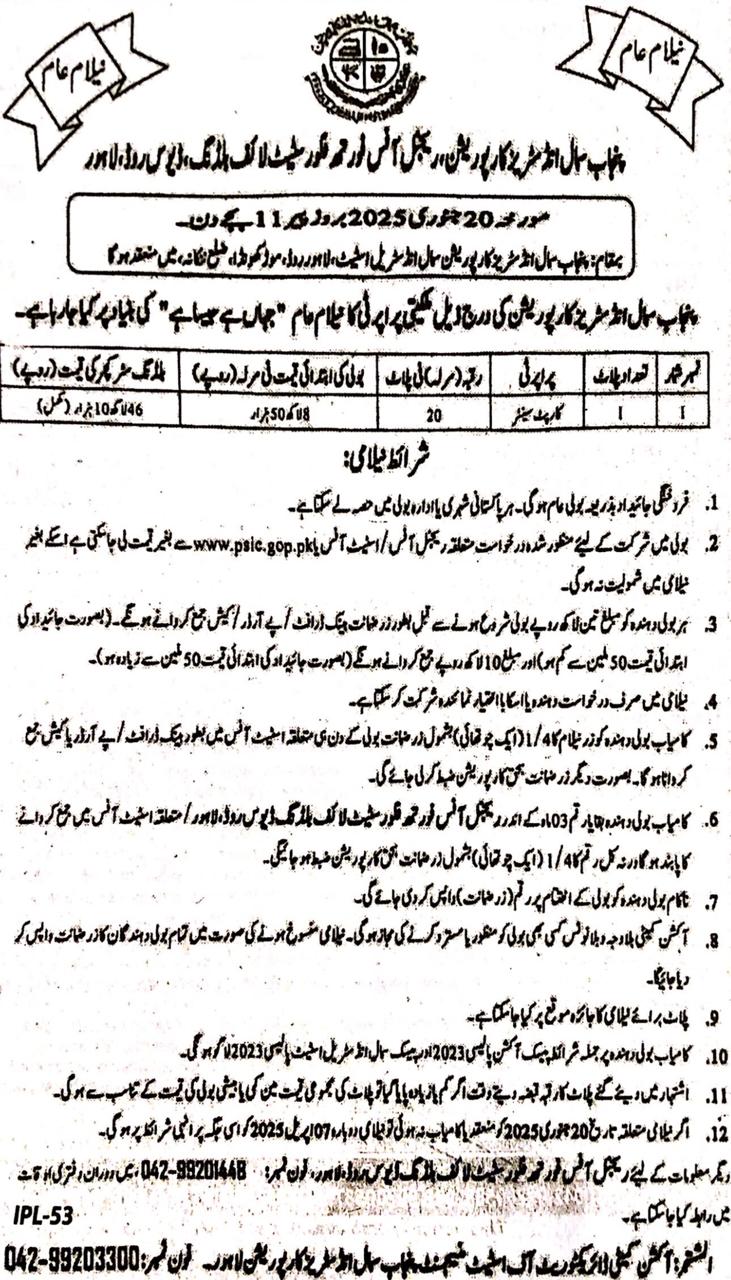 نیلام عام
نیلام عام
پنجاب سمال انڈسٹریز کارپوریشن، ریجنل آفس فورتھ فلور سٹیٹ لائف بلڈنگ، ڈیوس روڈ، لاہور
مورخہ 20 جنوری 2025 بروز پیر 11 بجے دن۔
بمقام: پنجاب سمال انڈسٹریز کارپوریشن سمال انڈسٹریل اسٹیٹ، لاہور روڈ، موڑ کھنڈا، ضلع ننکانہ، میں منعقد ہوگا
پنجاب سمال انڈسٹریز کارپوریشن کی درج ذیل ملکیتی پراپرٹی کا نیلام عام "جہاں ہے جیسا ہے" کی بنیاد پر کیا جا رہا ہے۔
نمبر شمار تعداد پلاٹ پراپرٹی رقبہ (مرلہ) فی پلاٹ بولی کی ابتدائی قیمت فی مرلہ (روپے) بلڈنگ سٹرکچر کی قیمت (روپے)
1 1 کارپٹ سینٹر 20 8 لاکھ 50 ہزار 46 لاکھ 10 ہزار (مکمل)
شرائط نیلامی:
1. فروختگی جائیداد بذریعہ بولی عام ہوگی۔ ہر پاکستانی شہری یا ادارہ بولی میں حصہ لے سکتا ہے۔
2. بولی میں شرکت کے لیئے منظور شدہ درخواست متعلقہ ریجنل آفس / اسٹیٹ آفس یا www.psic.gop.pk سے بغیر قیمت لی جاسکتی ہے اسکے بغیر
نیلامی میں شمولیت نہ ہوگی۔
3. ہر بولی دہندہ کو مبلغ تین لاکھ روپے بولی شروع ہونے سے قبل بطور زر ضمانت بینک ڈرافٹ / پے آرڈر / کیش جمع کروانے ہونگے۔ (بصورت جائیداد کی
ابتدائی قیمت 50 ملین سے کم ہو) اور مبلغ 10 لاکھ روپے جمع کروانے ہونگے (بصورت جائیداد کی ابتدائی قیمت 50 ملین سے زیادہ ہو)۔
4. نیلامی میں صرف درخواست دہندہ یا اسکا با اختیار نمائندہ شرکت کر سکتا ہے۔
5. کامیاب بولی دہندہ کو زر نیلام کا 1/4 (ایک چوتھائی) بشمول زر ضمانت بولی کے دن ہی متعلقہ اسٹیٹ آفس میں بطور بینک ڈرافٹ / پے آرڈر یا کیش جمع
کروانا ہوگا۔ بصورت دیگر زر ضمانت بحق کارپوریشن ضبط کرلی جائے گی۔
6. کامیاب بولی دہندہ بقایا رقم 03 ماہ کے اندر ریجنل آفس فورتھ فلور سٹیٹ لائف بلڈنگ ڈیوس روڈ، لاہور / متعلقہ اسٹیٹ آفس میں جمع کروانے
کا پابند ہوگا ورنہ کل رقم کا 1/4 (ایک چوتھائی) بشمول زر ضمانت بحق کارپوریشن ضبط ہو جائیگی۔
7. ناکام بولی دہندہ کو بولی کے اختتام پر رقم (زر ضمانت) واپس کر دی جائے گی۔
8. آکشن کمیٹی بلا وجہ و بلا نوٹس کسی بھی بولی کو منظور یا مسترد کرنے کی مجاز ہوگی۔ نیلامی منسوخ ہونے کی صورت میں تمام بولی دہندگان کا زر ضمانت واپس کر
دیا جائیگا۔
9. پلاٹ برائے نیلامی کا جائزہ موقع پر کیا جا سکتا ہے۔
10. کامیاب بولی دہندہ پر جملہ شرائط پیسک آکشن پالیسی 2023 اور پیسک سمال انڈسٹریل اسٹیٹ پالیسی 2023 لاگو ہوگی۔
11. اشتہار میں دیئے گئے پلاٹ کا رقبہ قبضہ دیتے وقت اگر کم یا زیادہ پایا گیا تو پلاٹ کی مجموعی قیمت میں کمی یا بیشی بولی کی قیمت کے تناسب سے ہوگی۔
12. اگر نیلامی متعلقہ تاریخ 20 جنوری 2025 کو منعقد یا کامیاب نہ ہوئی تو نیلامی دوبارہ 07 اپریل 2025 کو اسی جگہ پر انہی شرائط پر ہوگی۔
دیگر معلومات کے لیئے ریجنل آفس فورتھ فلور سٹیٹ لائف بلڈنگ ڈیوس روڈ، لاہور، فون نمبر: 042-99201448، میں دوران دفتری اوقات
میں رابطہ کیا جا سکتا ہے۔
IPL-53
المشتہر: آکشن کمیٹی ڈائریکٹوریٹ آف اسٹیٹ منیجمنٹ، پنجاب سمال انڈسٹریز کارپوریشن لاہور۔ فون نمبر: 042-99203300